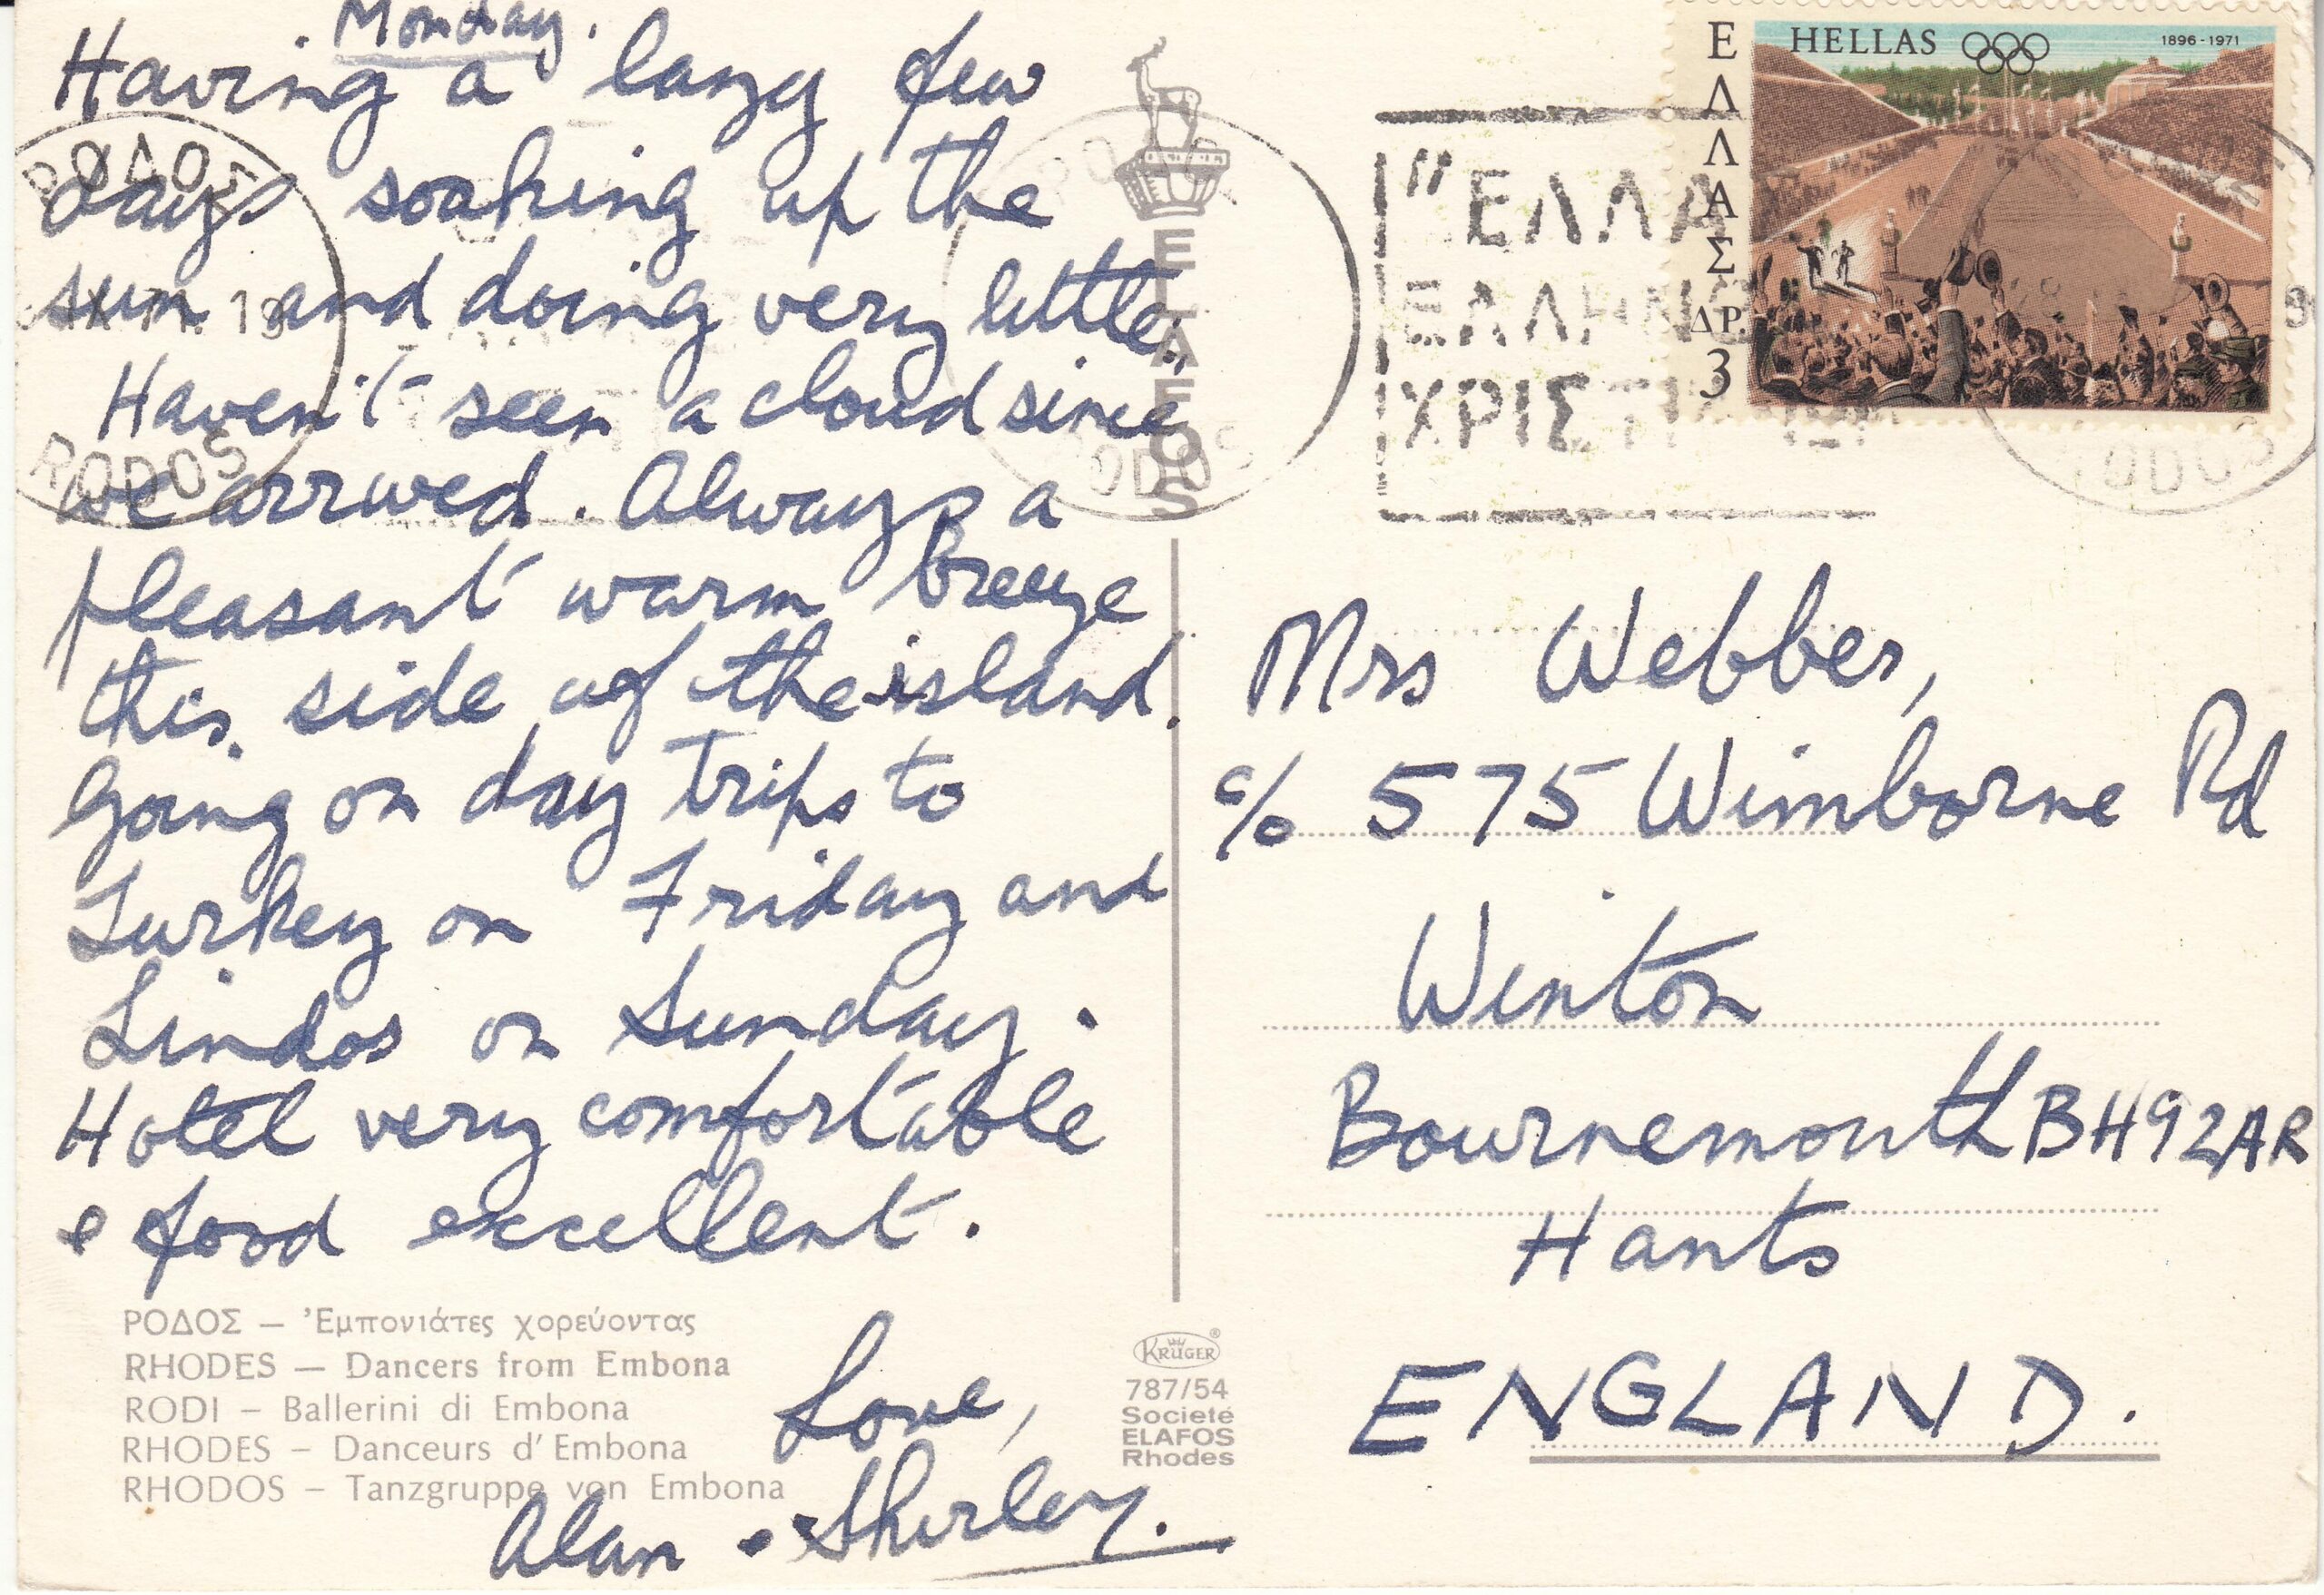 Monday.
Having a lazy few
days soaking up the
sun and doing very little.
Haven't seen a cloud since
we arrived. Always a
pleasant warm breeze
this side of the island.
Going on day trips to
Turkey on Friday and
Lindos on Sunday.
Hotel very comfortable
& food excellent.
Love,
Alan & Shirley.
ΡΟΔΟΣ — Ἐμπονιάτες χορεύοντας
RHODES — Dancers from Embona
RODI — Ballerini di Embona
RHODES — Danceurs d'Embona
RHODOS — Tanzgruppe von Embona
ΡΟΔΟΣ
RODOS
ELAFOS
KRÜGER®
787/54
Societé
ELAFOS
Rhodes
"ΕΛΛΑ
ΕΛΛΗΝΩ
ΧΡΙΣΤΙ
ODOS
ΕΛΛΑΣ
HELLAS
1896-1971
ΔΡ.
3
RODOS
Mrs Webber,
c/o 575 Wimborne Rd
Winton
Bournemouth BH92AR
Hants
ENGLAND.